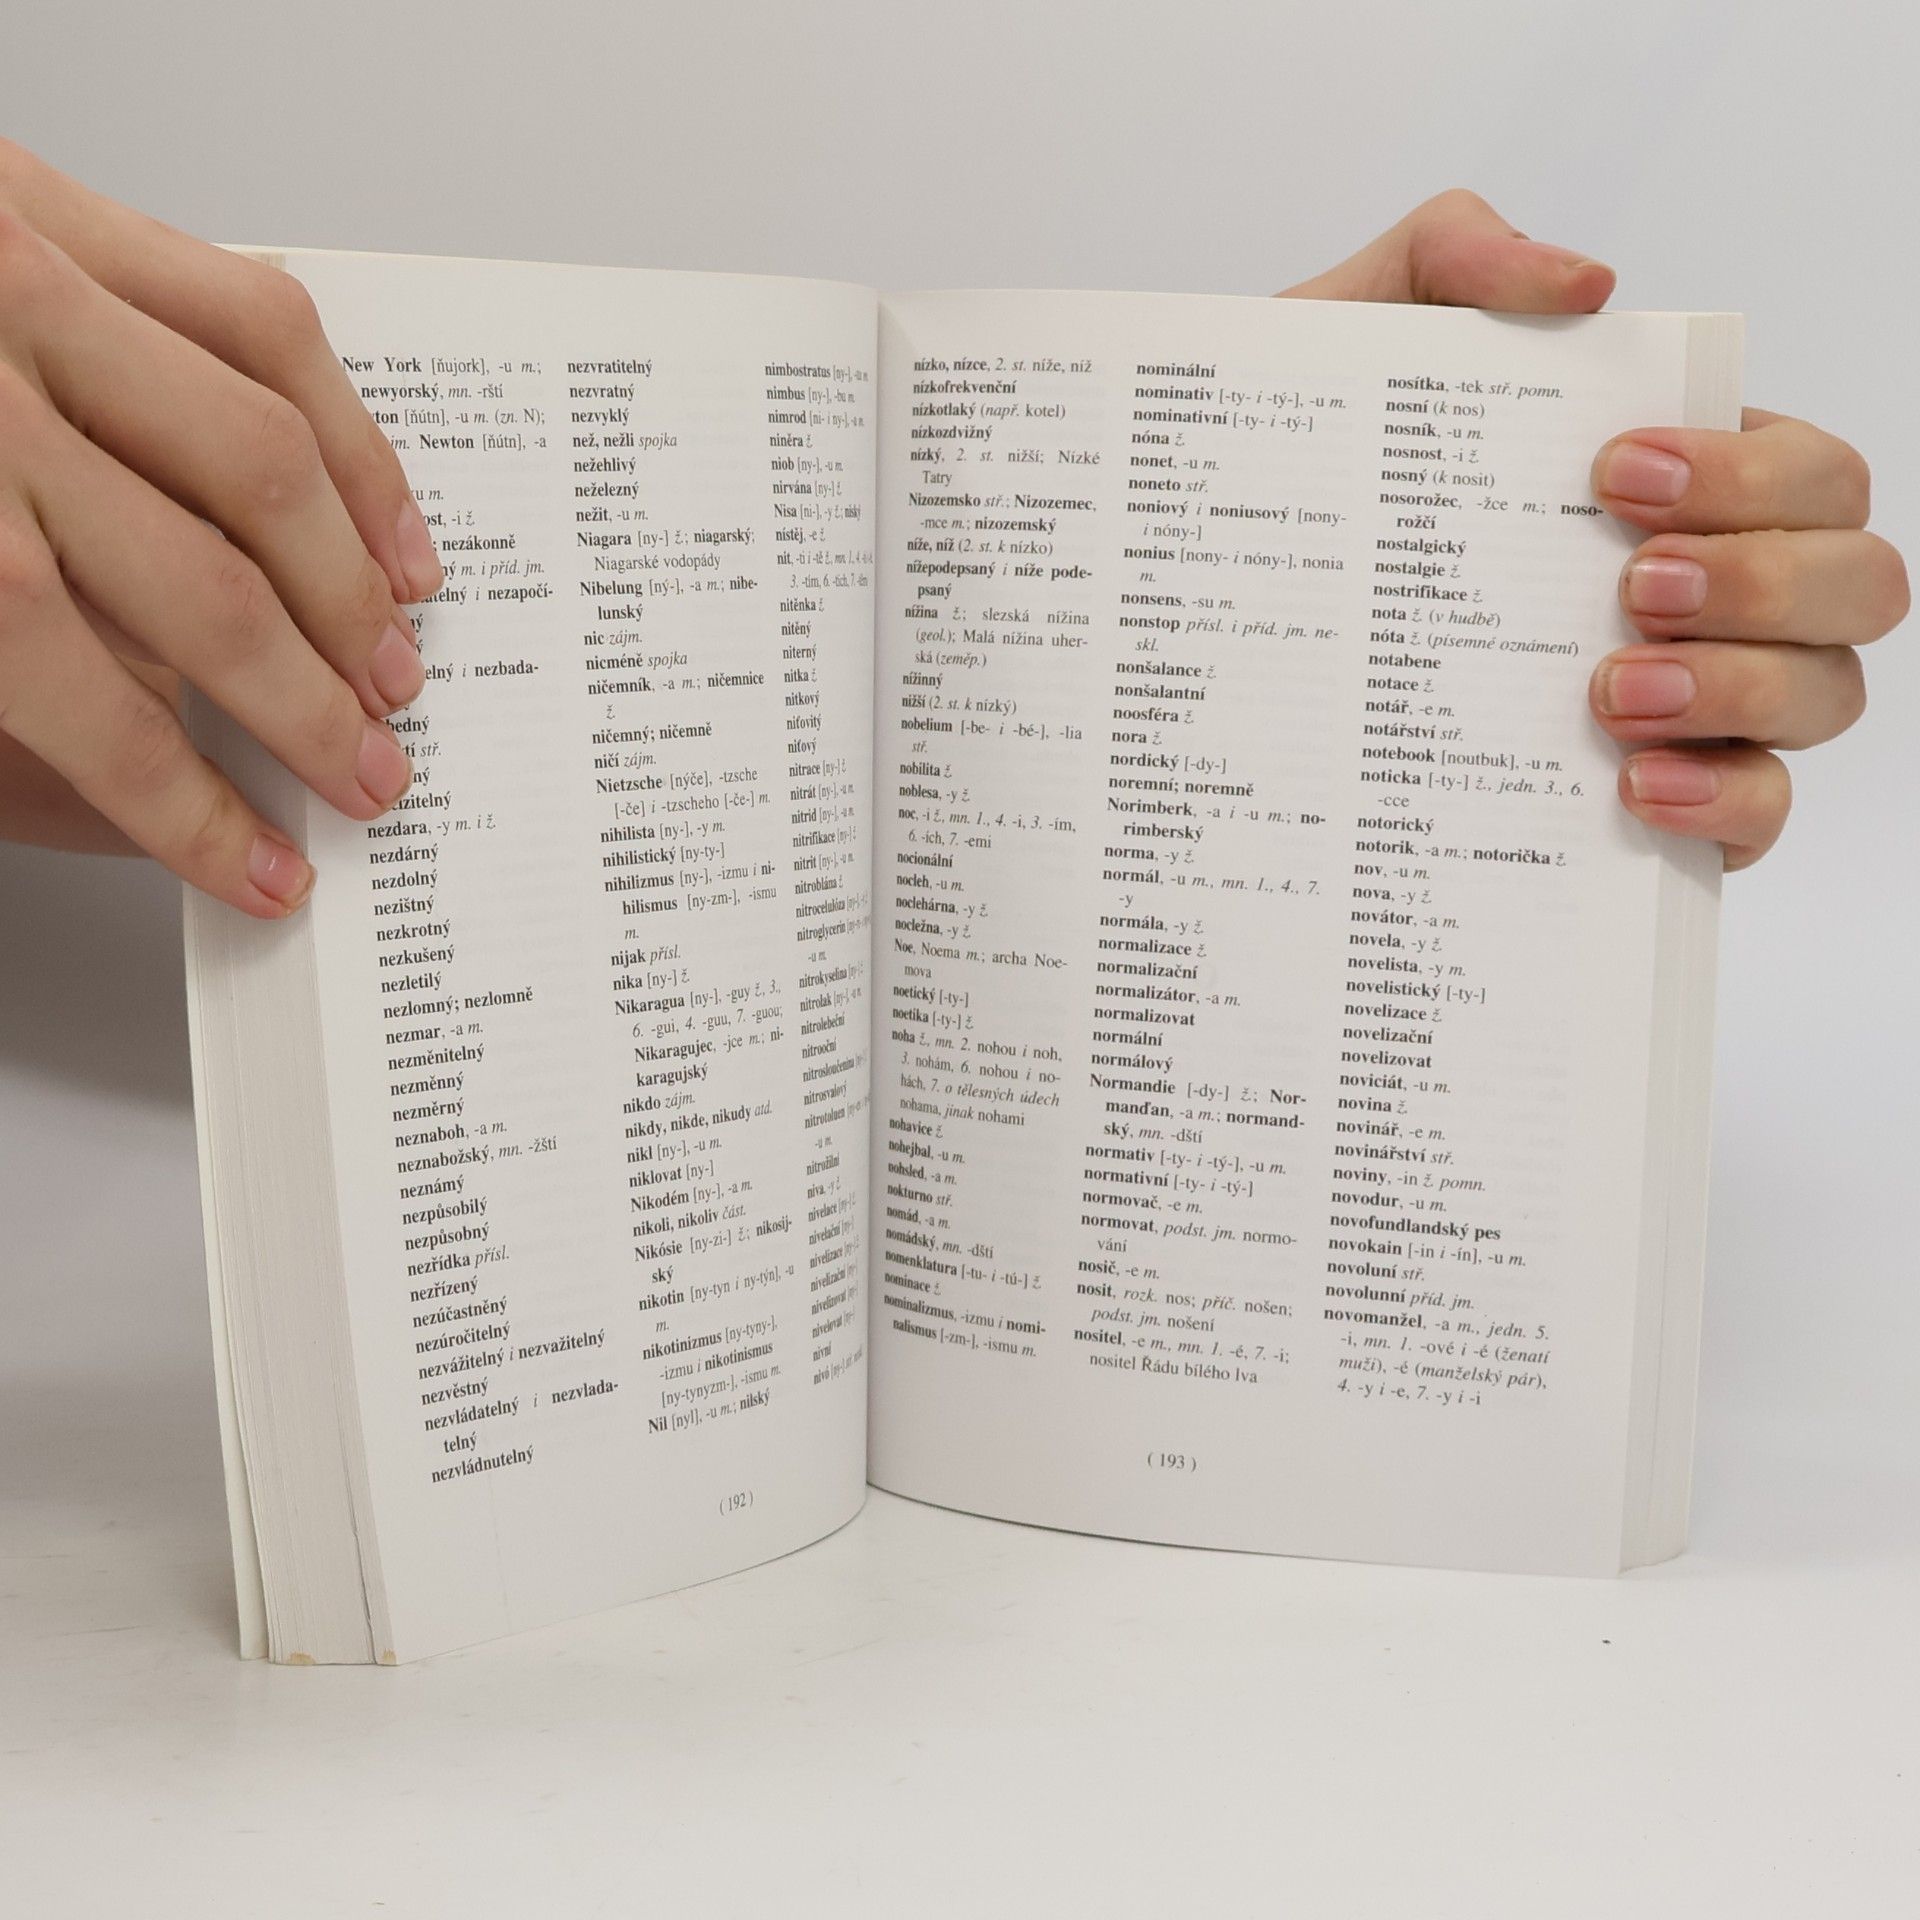 New York [ňujork], -u m.;
newyorský, mn. -rští
[ňútn], -u m. (zn. N);
Newton [ňútn], -a
m.
-i ž.
; nezákonně
m. i příd. jm.
i nezapočí-
i nezbada-
stř.
nezdara, -y m. i ž.
nezdárný
nezdolný
nezištný
nezkrotný
nezkušený
nezletilý
nezlomný; nezlomně
nezmar, -a m.
nezměnitelný
nezměnný
nezměrný
neznaboh, -a m.
neznabožský, mn. -žští
neznámý
nezpůsobilý
nezpůsobný
nezřídka přísl.
nezřízený
nezúčastněný
nezúročitelný
nezvážitelný i nezvažitelný
nezvěstný
nezvládatelný i nezvlada-
telný
nezvládnutelný
nezvratitelný
nezvratný
nezvyklý
než, nežli spojka
nežehlivý
neželezný
nežit, -u m.
Niagara [ny-] ž.; niagarský;
Niagarské vodopády
Nibelung [ný-], -a m.; nibe-
lunský
nic zájm.
nicméně spojka
ničemník, -a m.; ničemnice
ž.
ničemný; ničemně
ničí zájm.
Nietzsche [nýče], -tzsche
[-če] i -tzscheho [-če-] m.
nihilista [ny-], -y m.
nihilistický [ny-ty-]
nihilizmus [ny-], -izmu i ni-
hilismus [ny-zm-], -ismu
m.
nijak přísl.
nika [ny-] ž.
Nikaragua [ny-], -guy ž., 3.,
6. -gui, 4. -guu, 7. -guou;
Nikaragujec, -jce m.; ni-
karagujský
nikdo zájm.
nikdy, nikde, nikudy atd.
nikl [ny-], -u m.
niklovat [ny-]
Nikodém [ny-], -a m.
nikoli, nikoliv část.
Nikósie [ny-zi-] ž.; nikosij-
ský
nikotin [ny-tyn i ny-týn], -u
m.
nikotinizmus [ny-tyny-],
-izmu i nikotinismus
[ny-tynyzm-], -ismu m.
Nil [nyl], -u m.; nilský
nimbostratus [ny-], -u m.
nimbus [ny-], -bu m.
nimrod [ni- i ny-], -a m.
niněra ž.
niob [ny-], -u m.
nirvána [ny-] ž.
Nisa [ni-], -y ž.; niský
nístěj, -e ž.
nit, -ti i -tě ž., mn. 1., 4.
3. -tím, 6. -tích, 7. -těm
nitěnka ž.
nitěný
niterný
nitka ž.
nitkový
niťovitý
niťový
nitrace [ny-] ž.
nitrát [ny-], -u m.
nitrid [ny-], -u m.
nitrifikace [ny-] ž.
nitrit [ny-], -u m.
nitroblána ž.
nitrocelulóza [ny-],
nitroglycerin
-u m.
nitrokyselina [ny-] ž.
nitrolak [ny-], -u m.
nitrolebeční
nitrooční
nitrosloučenina
nitrosvalový
nitrotoluen
-u m.
nitrožilní
niva, -y ž.
nivelace [ny-] ž.
nivelační [ny-]
nivelizace [ny-] ž.
nivelizační [ny-]
nivelizovat [ny-]
nivelovat [ny-]
nivní
nivó [ny-]
( 192 )
nízko, nízce, 2. st. níže, níž
nízkofrekvenční
nízkotlaký (např. kotel)
nízkozdvižný
nízký, 2. st. nižší; Nízké
Tatry
Nizozemsko stř.; Nizozemec,
-mce m.; nizozemský
níže, níž (2. st. k nízko)
nížepodepsaný i níže pode-
psaný
nížina ž.; slezská nížina
(geol.); Malá nížina uher-
ská (zeměp.)
nížinný
nižší (2. st. k nízký)
nobelium [-be- i -bé-], -lia
stř.
nobilita ž.
noblesa, -y ž.
noc, -i ž., mn. 1., 4. -i, 3. -ím,
6. -ích, 7. -emi
nocionální
nocleh, -u m.
noclehárna, -y ž.
nocležna, -y ž.
Noe, Noema m.; archa Noe-
mova
noetický [-ty-]
noetika [-ty-] ž.
noha ž., mn. 2. nohou i noh,
3. nohám, 6. nohou i no-
hách, 7. o tělesných údech
nohama, jinak nohami
nohavice ž.
nohejbal, -u m.
nohsled, -a m.
nokturno stř.
nomád, -a m.
nomádský, mn. -dští
nomenklatura [-tu- i -tú-] ž.
nominace ž.
nominalizmus, -izmu i nomi-
nalismus [-zm-], -ismu m.
nominální
nominativ [-ty- i -tý-], -u m.
nominativní [-ty- i -tý-]
nóna ž.
nonet, -u m.
noneto stř.
noniový i noniusový [nony-
i nóny-]
nonius [nony- i nóny-], nonia
m.
nonsens, -su m.
nonstop přísl. i příd. jm. ne-
skl.
nonšalance ž.
nonšalantní
noosféra ž.
nora ž.
nordický [-dy-]
noremní; noremně
Norimberk, -a i -u m.; no-
rimberský
norma, -y ž.
normál, -u m., mn. 1., 4., 7.
-y
normála, -y ž.
normalizace ž.
normalizační
normalizátor, -a m.
normalizovat
normální
normálový
Normandie [-dy-] ž.; Nor-
manďan, -a m.; normand-
ský, mn. -dští
normativ [-ty- i -tý-], -u m.
normativní [-ty- i -tý-]
normovač, -e m.
normovat, podst. jm. normo-
vání
nosič, -e m.
nosit, rozk. nos; příč. nošen;
podst. jm. nošení
nositel, -e m., mn. 1. -é, 7. -i;
nositel Řádu bílého lva
nosítka, -tek stř. pomn.
nosní (k nos)
nosník, -u m.
nosnost, -i ž.
nosný (k nosit)
nosorožec, -žce m.; noso-
rožčí
nostalgický
nostalgie ž.
nostrifikace ž.
nota ž. (v hudbě)
nóta ž. (písemné oznámení)
notabene
notace ž.
notář, -e m.
notářství stř.
notebook [noutbuk], -u m.
noticka [-ty-] ž., jedn. 3., 6.
-cce
notorický
notorik, -a m.; notorička ž.
nov, -u m.
nova, -y ž.
novátor, -a m.
novela, -y ž.
novelista, -y m.
novelistický [-ty-]
novelizace ž.
novelizační
novelizovat
noviciát, -u m.
novina ž.
novinář, -e m.
novinářství stř.
noviny, -in ž. pomn.
novodur, -u m.
novofundlandský pes
novokain [-in i -ín], -u m.
novoluní stř.
novolunní příd. jm.
novomanžel, -a m., jedn. 5.
-i, mn. 1. -ové i -é (ženatí
muži), -é (manželský pár),
4. -y i -e, 7. -y i -i
( 193 )